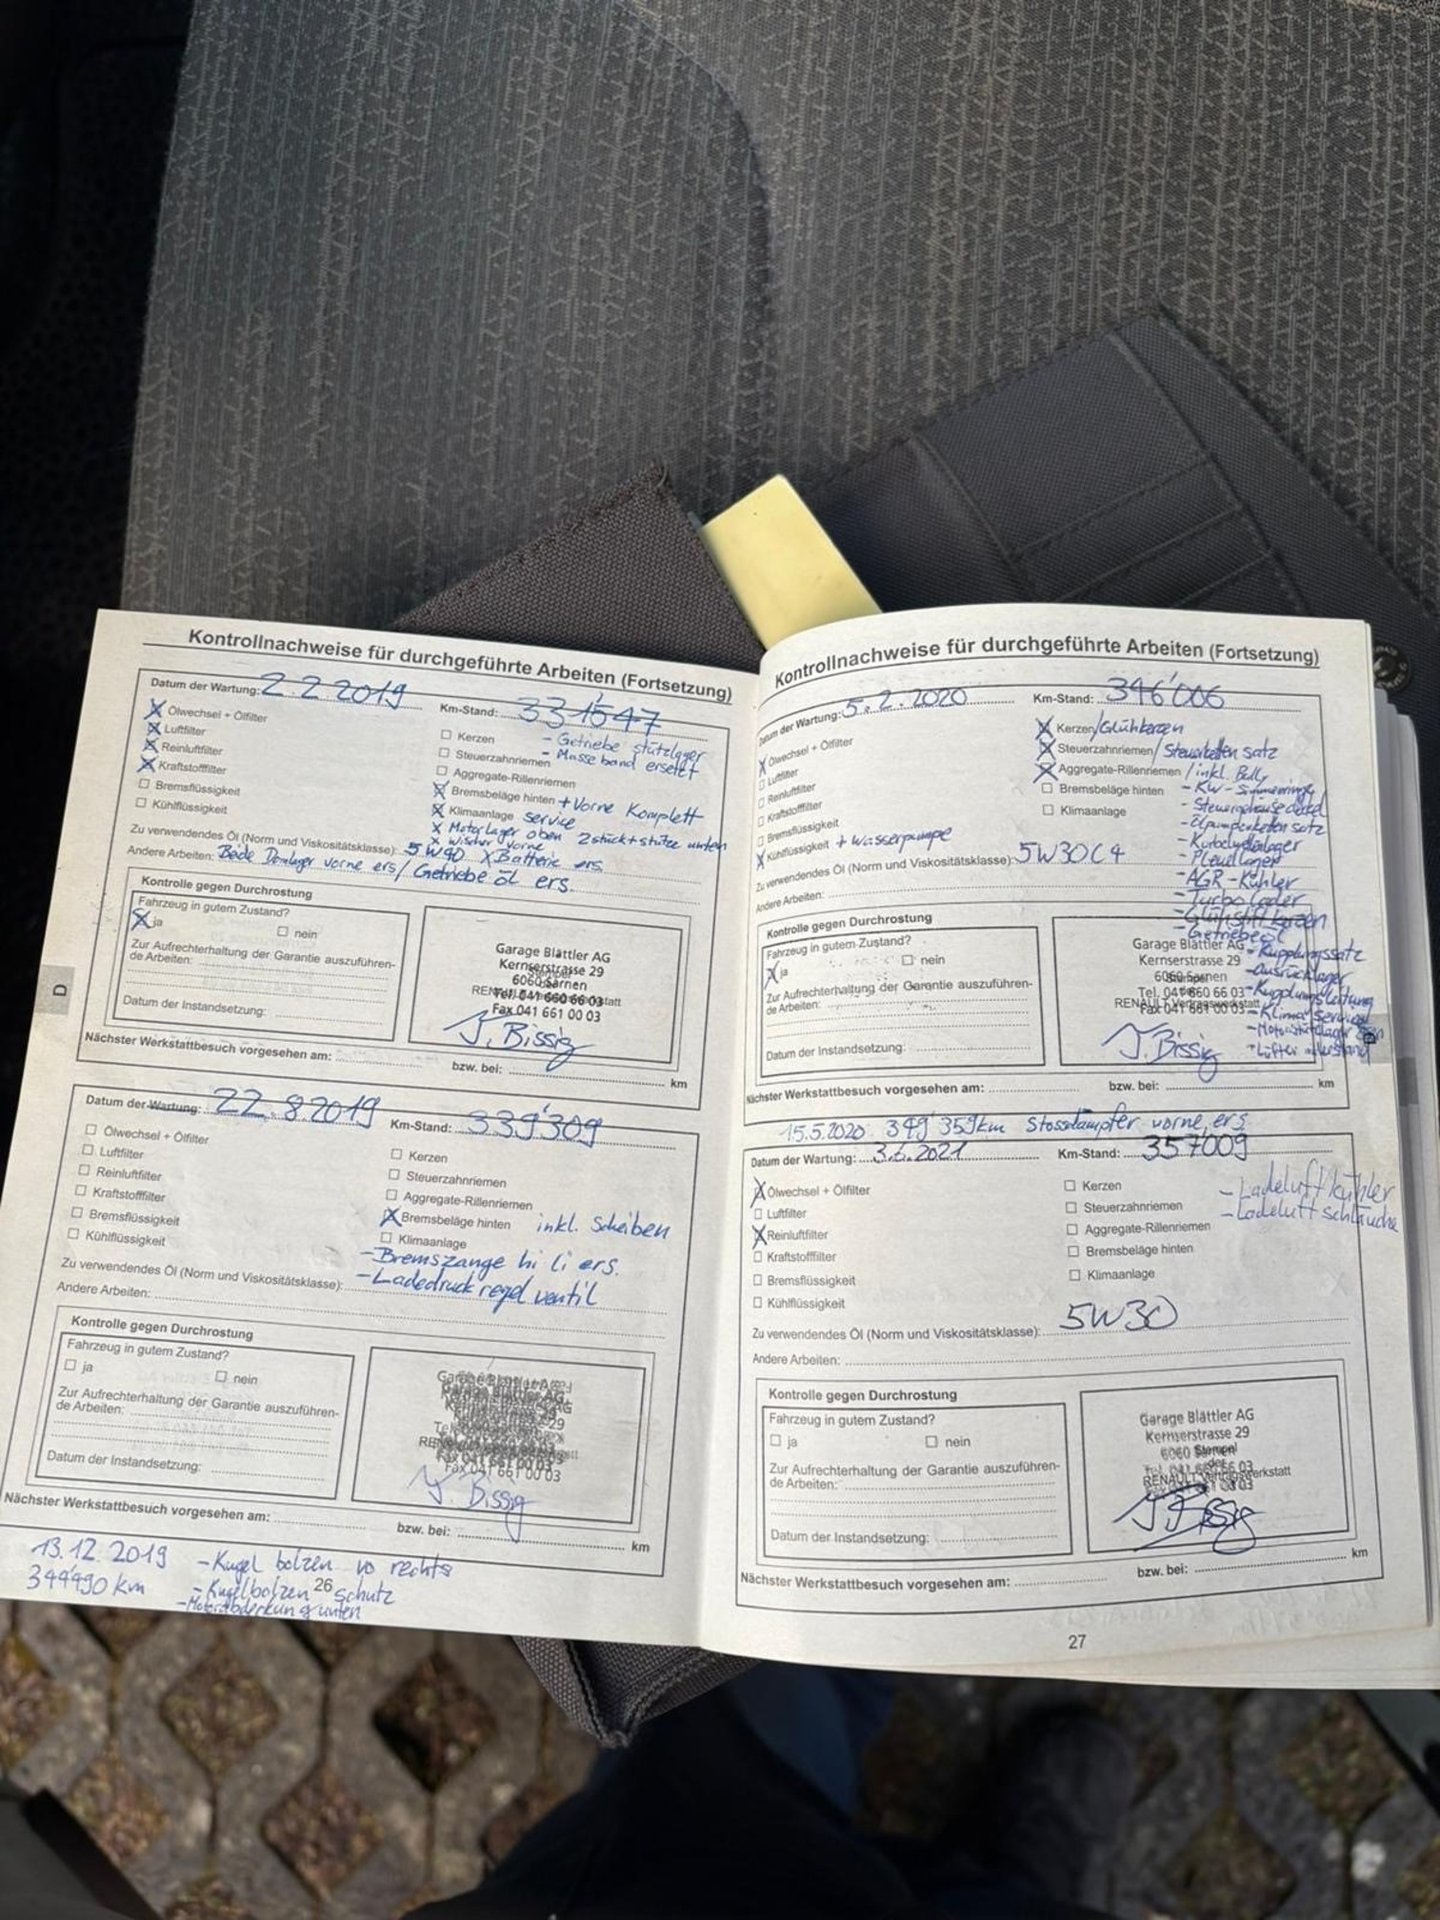 Kontrollnachweise für durchgeführte Arbeiten (Fortsetzung)
Datum der Wartung: 2.2.2019 Km-Stand: 331'547
Ölwechsel + Ölfilter
Luftfilter
Reinluftfilter
Kraftstofffilter
Bremsflüssigkeit
Kühlflüssigkeit
Kerzen - Getriebe stützlager
Steuerzahnriemen - Masseband ersetzt
Aggregate-Rillenriemen
Bremsbeläge hinten + Vorne Komplett
Klimaanlage service
X Motorlager oben 2stück + stütze unten
X Wischer vorne
Zu verwendendes Öl (Norm und Viskositätsklasse): 5W40 X Batterie ers.
Andere Arbeiten: Beide Domlager vorne ers / Getriebe öl ers.
Kontrolle gegen Durchrostung
Fahrzeug in gutem Zustand?
X ja nein
Zur Aufrechterhaltung der Garantie auszuführen-
de Arbeiten:
Datum der Instandsetzung:
Garage Blättler AG
Kernserstrasse 29
6060 Sarnen
Tel. 041 660 66 03
Fax 041 661 00 03
J. Bissig
Nächster Werkstattbesuch vorgesehen am: bzw. bei: km
D
Datum der Wartung: 22.8.2019 Km-Stand: 339'309
Ölwechsel + Ölfilter
Luftfilter
Reinluftfilter
Kraftstofffilter
Bremsflüssigkeit
Kühlflüssigkeit
Kerzen
Steuerzahnriemen
Aggregate-Rillenriemen
Bremsbeläge hinten inkl. Scheiben
Klimaanlage
- Bremszange hi li ers.
Zu verwendendes Öl (Norm und Viskositätsklasse): - Ladedruck regel ventil
Andere Arbeiten:
Kontrolle gegen Durchrostung
Fahrzeug in gutem Zustand?
ja nein
Zur Aufrechterhaltung der Garantie auszuführen-
de Arbeiten:
Datum der Instandsetzung:
Garage Blättler AG
Fax 041 661 00 03
J. Bissig
Nächster Werkstattbesuch vorgesehen am: bzw. bei: km
13.12.2019 - Kugel bolzen vo rechts
344490 km - Kugelbolzen schutz
- Motorabdeckung unten
26
Kontrollnachweise für durchgeführte Arbeiten (Fortsetzung)
Datum der Wartung: 5.2.2020 Km-Stand: 346'006
Ölwechsel + Ölfilter
Luftfilter
Reinluftfilter
Kraftstofffilter
Bremsflüssigkeit
Kühlflüssigkeit + Wasserpumpe
Kerzen/Glühkerzen
Steuerzahnriemen/Steuerketten satz
Aggregate-Rillenriemen/inkl.
Bremsbeläge hinten - KW-Simmerringe
Klimaanlage - Steuergehäuse deckel
- Ölpumpenketten satz
- Kurbelwellenlager
- Pleuellager
- AGR-Kühler
- Turbo lader
- Glühstift kerzen
- Getriebeöl
- Kupplungssatz
- Ausrücklager
- Kupplungsleitung
- Klima service
Zu verwendendes Öl (Norm und Viskositätsklasse): 5W30C4
Andere Arbeiten:
Kontrolle gegen Durchrostung
Fahrzeug in gutem Zustand?
X ja nein
Zur Aufrechterhaltung der Garantie auszuführen-
de Arbeiten:
Datum der Instandsetzung:
Garage Blättler AG
Kernserstrasse 29
6060 Sarnen
Tel. 041 660 66 03
RENAULT Vertragswerkstatt
Fax 041 661 00 03
J. Bissig
Nächster Werkstattbesuch vorgesehen am: bzw. bei: km
15.5.2020 349'359km Stossdämpfer vorne ers.
Datum der Wartung: 3.6.2021 Km-Stand: 357'009
Ölwechsel + Ölfilter
Luftfilter
Reinluftfilter
Kraftstofffilter
Bremsflüssigkeit
Kühlflüssigkeit
Kerzen - Ladeluftkühler
Steuerzahnriemen - Ladeluft schläuche
Aggregate-Rillenriemen
Bremsbeläge hinten
Klimaanlage
Zu verwendendes Öl (Norm und Viskositätsklasse): 5W30
Andere Arbeiten:
Kontrolle gegen Durchrostung
Fahrzeug in gutem Zustand?
ja nein
Zur Aufrechterhaltung der Garantie auszuführen-
de Arbeiten:
Datum der Instandsetzung:
Garage Blättler AG
Kernserstrasse 29
6060 Sarnen
RENAULT Vertragswerkstatt
J. Bissig
Nächster Werkstattbesuch vorgesehen am: bzw. bei: km
27